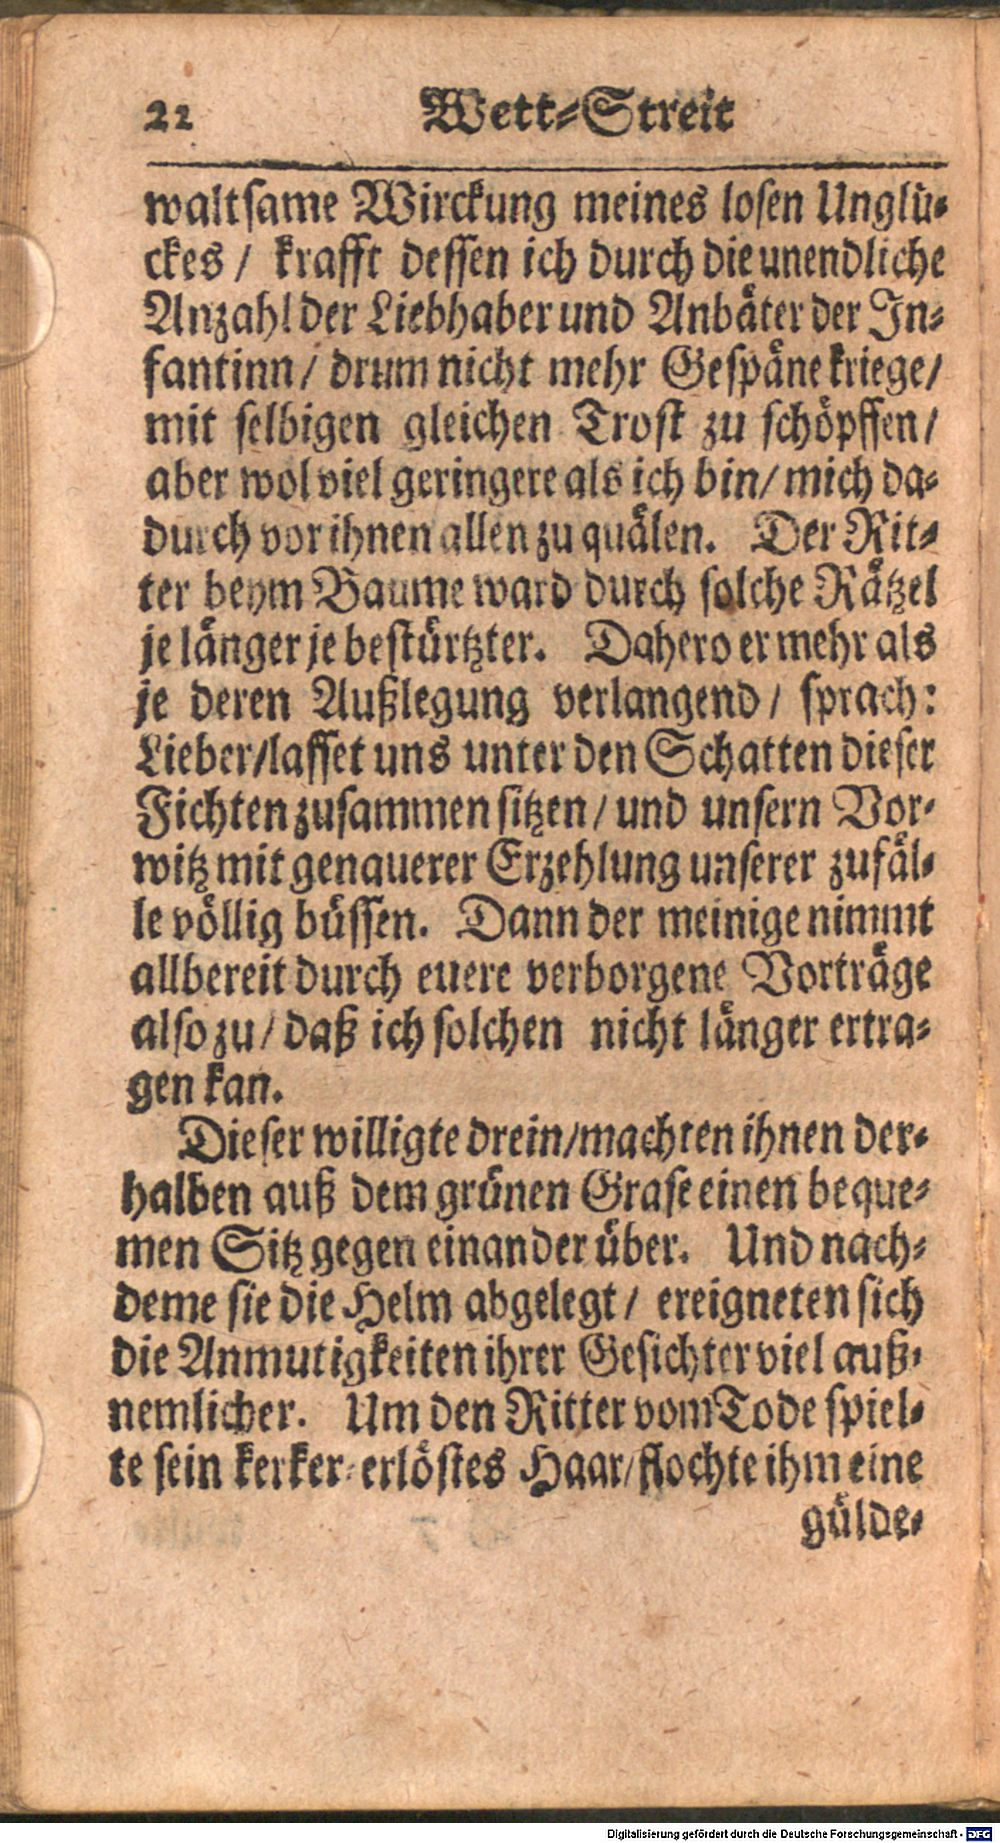 22 Wett-Streit
waltsame Wirckung meines losen Unglü-
ckes / krafft dessen ich durch die unendliche
Anzahl der Liebhaber und Anbäter der In-
fantinn / drum nicht mehr Gespäne kriege /
mit selbigen gleichen Trost zu schöpffen /
aber wol viel geringere als ich bin / mich da-
durch vor ihnen allen zu quälen. Der Rit-
ter beym Baume ward durch solche Rätzel
je länger je bestürtzter. Dahero er mehr als
je deren Außlegung verlangend / sprach:
Lieber / lasset uns unter den Schatten dieser
Fichten zusammen sitzen / und unsern Vor-
witz mit genauerer Erzehlung unserer zufäl-
le völlig büssen. Dann der meinige nimmt
allbereit durch euere verborgene Vorträge
also zu / daß ich solchen nicht länger ertra-
gen kan.
Dieser willigte drein / machten ihnen der-
halben auß dem grünen Grase einen beque-
men Sitz gegen einander über. Und nach-
deme sie die Helm abgelegt / ereigneten sich
die Anmutigkeiten ihrer Gesichter viel auß-
nemlicher. Um den Ritter vom Tode spiel-
te sein kerker-erlöstes Haar / flochte ihm eine
gülde-
Digitalisierung gefördert durch die Deutsche Forschungsgemeinschaft - DFG